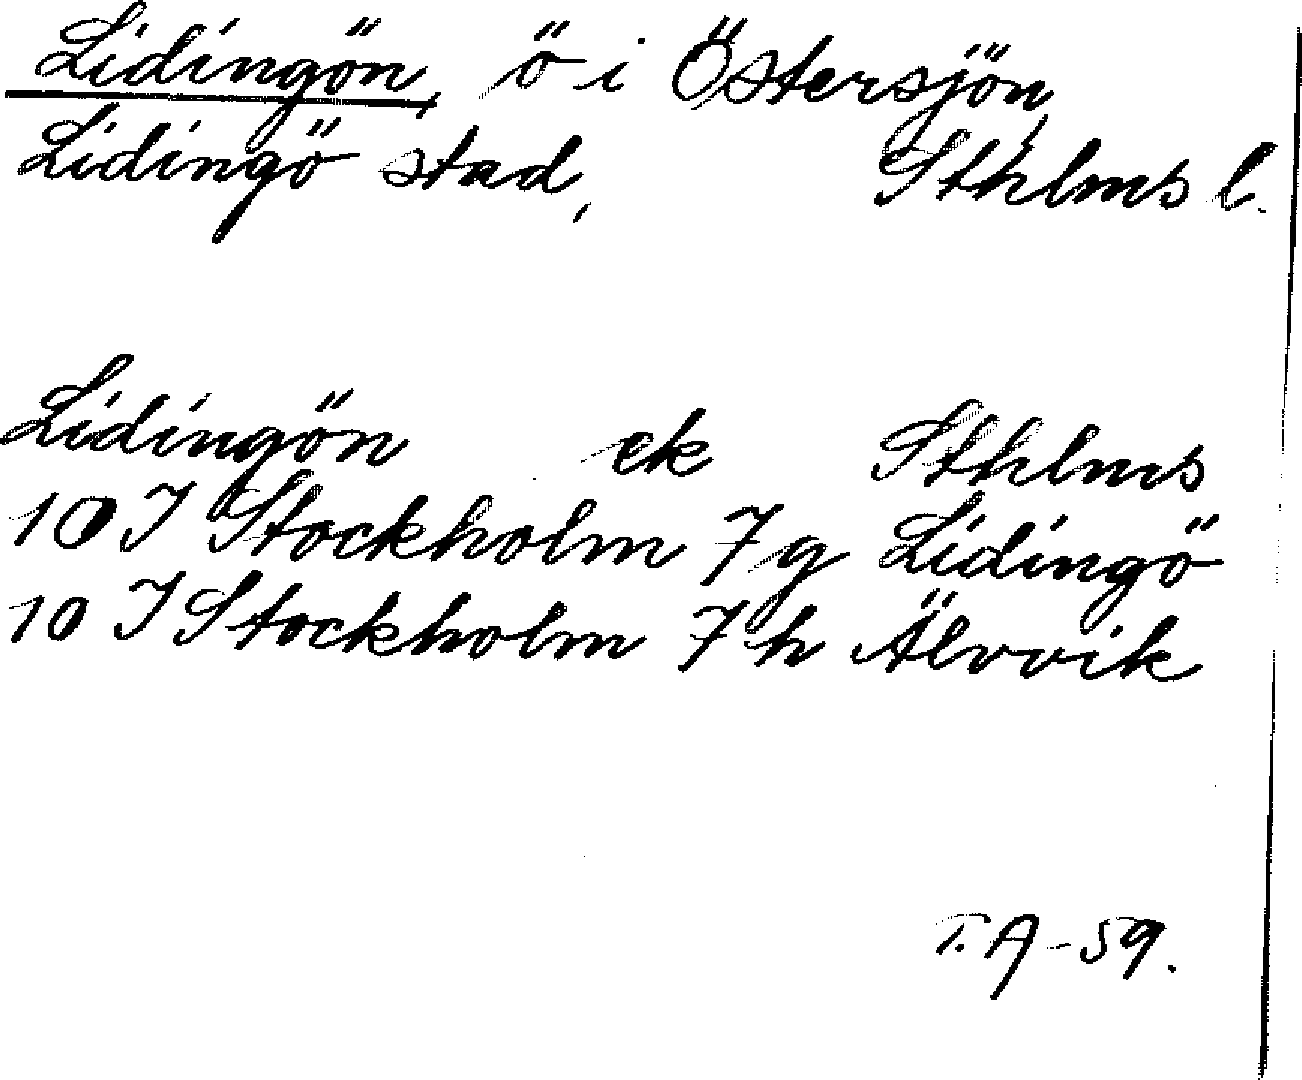 Lidingön, ö i Östersjön,
Lidingö stad, Sthlms l.
Lidingön ek Sthlms
10 I Stockholm 7 g Lidingö
10 I Stockholm 7 h Älvvik
T. A -59.